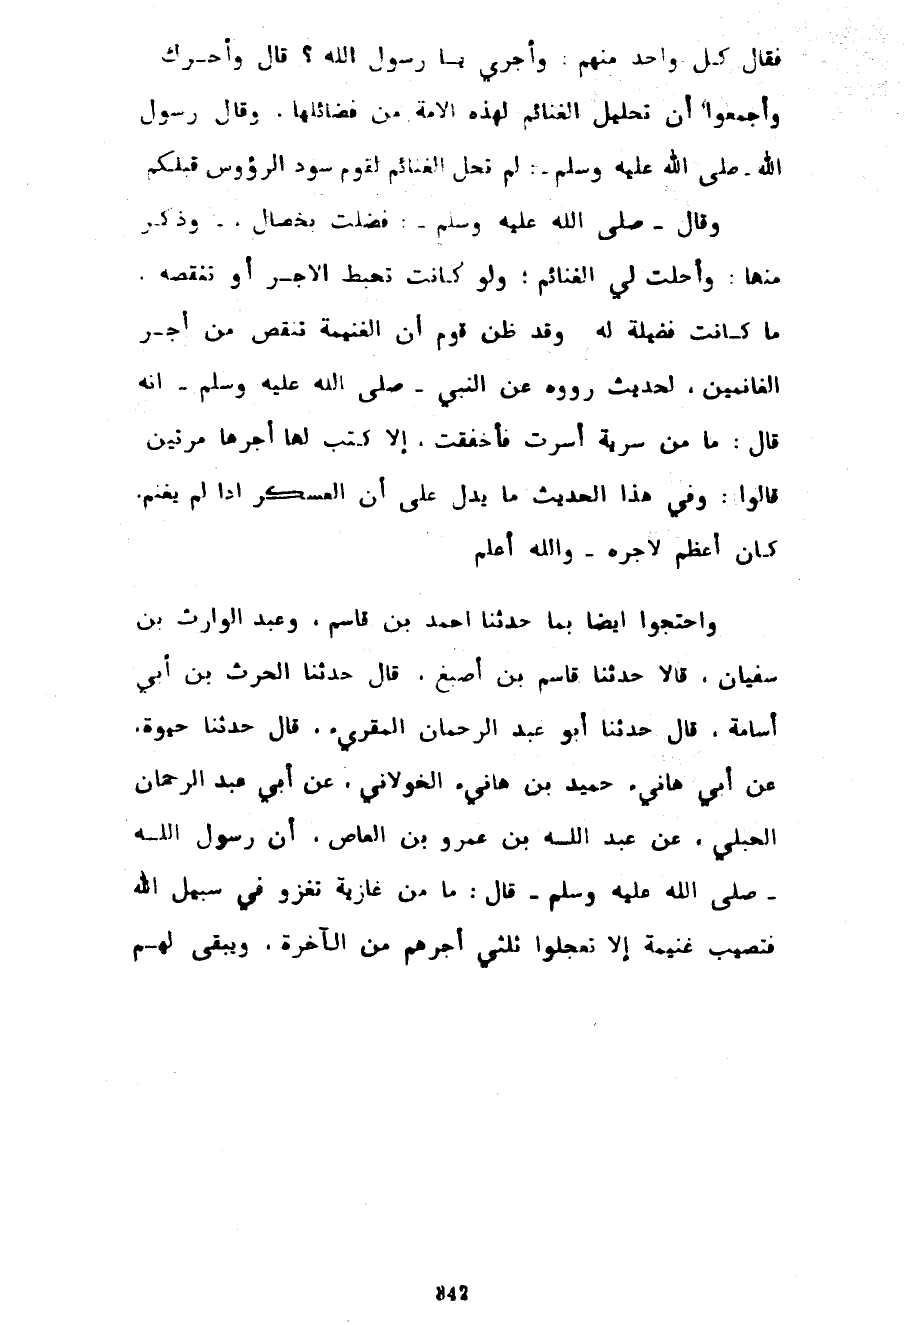 فقال كل واحد منهم : وأجري يا رسول الله ؟ قال وأجرك
وأجمعوا أن تحليل الغنائم لهذه الامة من فضائلها . وقال رسول
الله - صلى الله عليه وسلم - : لم تحل الغنائم لقوم سود الرؤوس قبلكم
وقال - صلى الله عليه وسلم - : فضلت بخصال . - وذكر
منها : وأحلت لي الغنائم ؛ ولو كانت تحبط الاجر أو تنقصه .
ما كانت فضيلة له وقد ظن قوم أن الغنيمة تنقص من أجر
الغانمين ، لحديث رووه عن النبي - صلى الله عليه وسلم - انه
قال : ما من سرية أسرت فأخفقت ، إلا كتب لها أجرها مرتين
قالوا : وفي هذا الحديث ما يدل على أن العسكر اذا لم يغنم.
كان أعظم لاجره - والله أعلم
واحتجوا ايضا بما حدثنا احمد بن قاسم ، وعبد الوارث بن
سفيان ، قالا حدثنا قاسم بن أصبغ ، قال حدثنا الحرث بن أبي
أسامة ، قال حدثنا أبو عبد الرحمان المقريء ، قال حدثنا حيوة،
عن أبي هانيء حميد بن هانيء الخولاني ، عن أبي عبد الرحمان
الحبلي ، عن عبد الله بن عمرو بن العاص ، أن رسول الله
- صلى الله عليه وسلم - قال : ما من غازية تغزو في سبيل الله
فتصيب غنيمة إلا تعجلوا ثلثي أجرهم من الآخرة ، ويبقى لهم
342